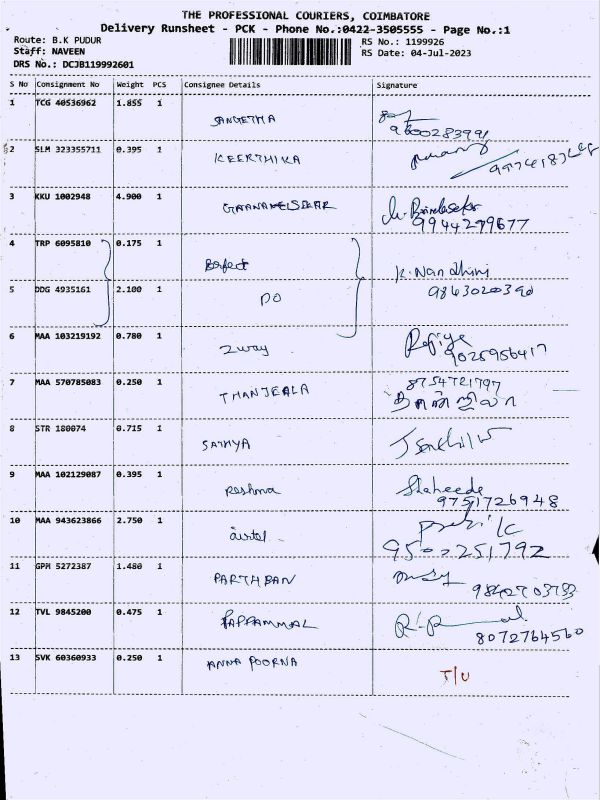 THE PROFESSIONAL COURIERS, COIMBATORE
Delivery Runsheet - PCK - Phone No.:0422-3505555 - Page No.:1
Route: B.K PUDUR RS No.: 1199926
Staff: NAVEEN RS Date: 04-Jul-2023
DRS No.: DCJB119992601
S No Consignment No Weight PCS Consignee Details Signature
1 TCG 40536962 1.855 1
SANGETHA
9600283991
2 SLM 323355711 0.395 1
KEERTHIKA
3 KKU 1002948 4.900 1
9944279677
4 TRP 6095810 0.175 1
Perfect K. Nandhini
5 DDG 4935161 2.100 1 9843020390
DO
6 MAA 103219192 0.780 1
2way 9025956417
7 MAA 570785083 0.250 1 8754721797
THANJEALA
8 STR 180074 0.715 1
SATHYA
9 MAA 102129087 0.395 1
Reshma Shaheeda
9751726948
10 MAA 943623866 2.750 1
airtel
9500251792
11 GPM 5272387 1.480 1
PARTHBAN 9842703733
12 TVL 9845200 0.475 1
PAPPAMMAL
8072764560
13 SVK 60360933 0.250 1
ANNA POORNA
T/U